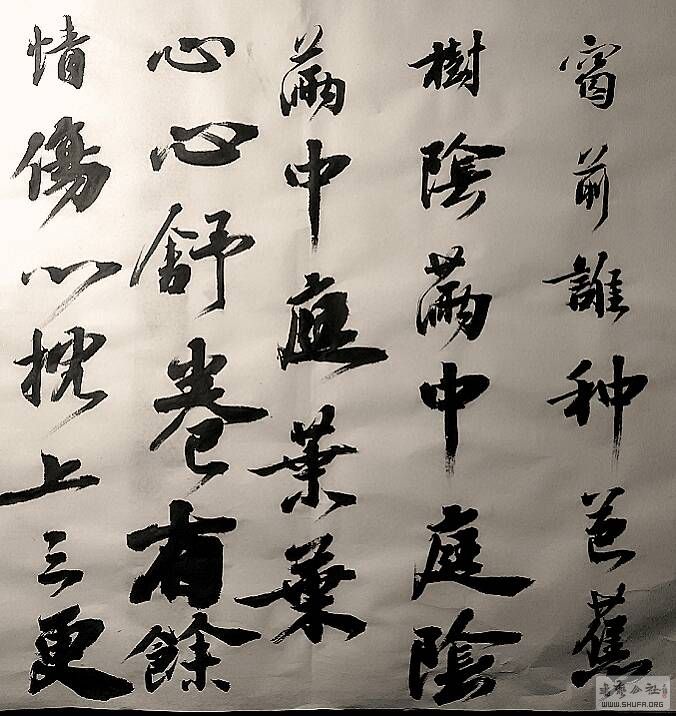 窗前誰种芭蕉
樹陰滿中庭陰
滿中庭葉葉
心心舒卷有餘
情傷心枕上三更
书艺公社
WWW.SHUFA.ORG